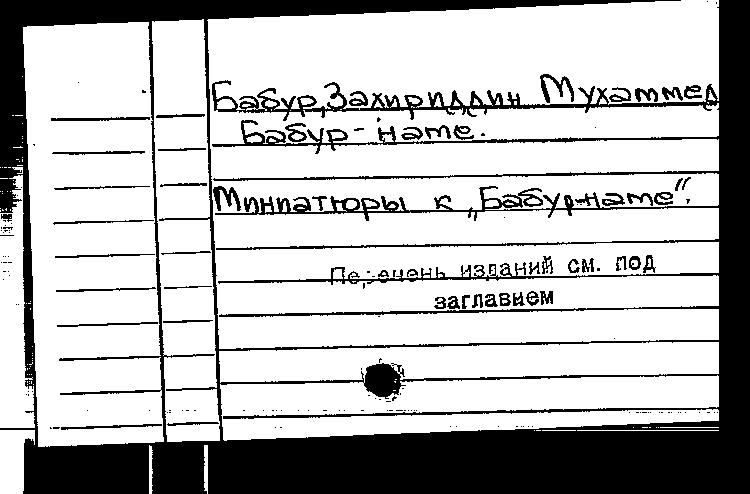 Бабур, Захириддин Мухаммед
Бабур-наме.
Миниатюры к „Бабур-наме“.
Перечень изданий см. под
заглавием